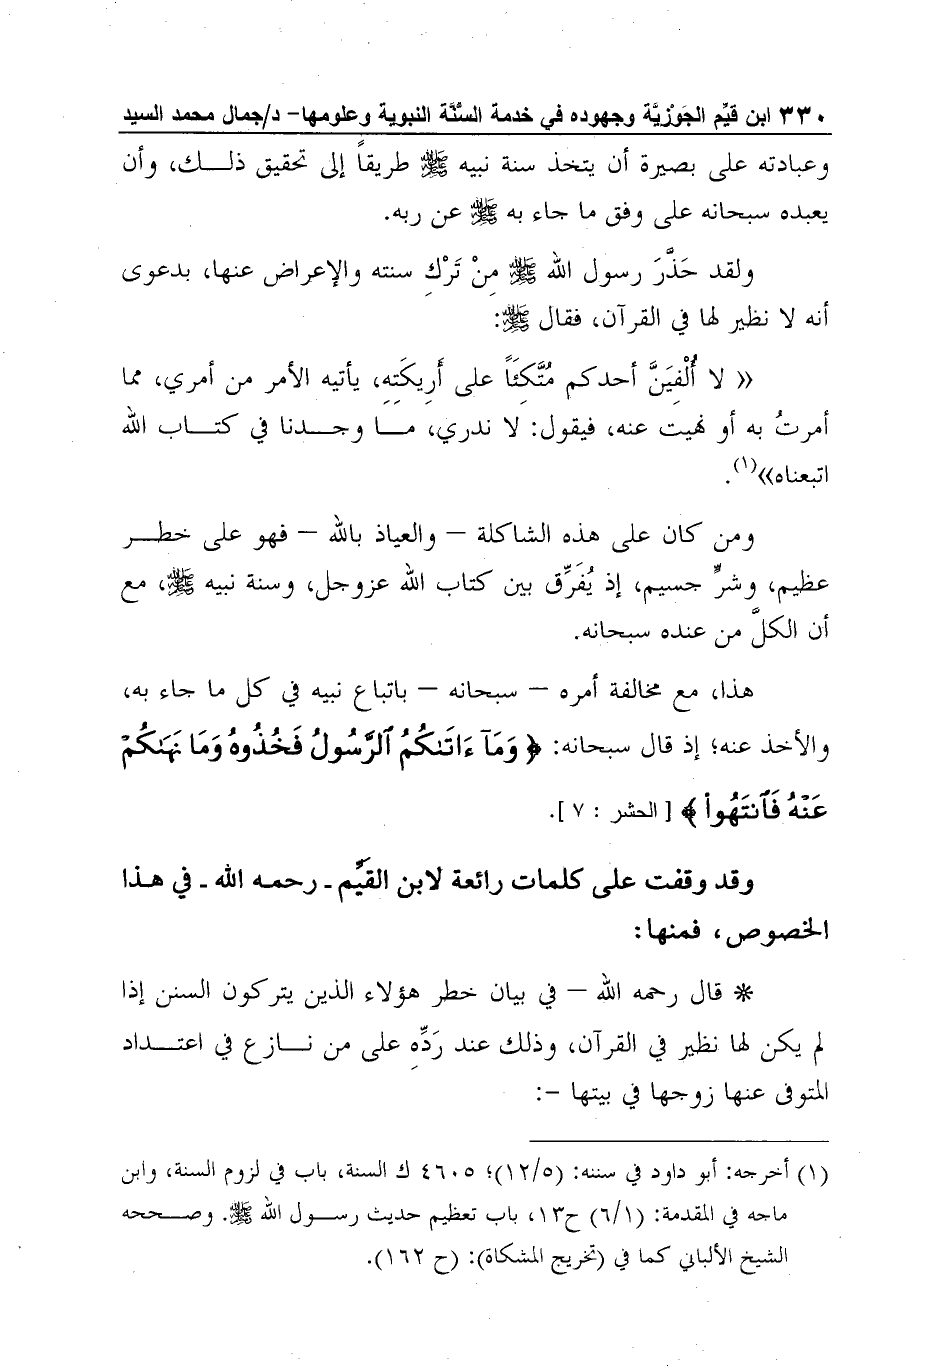 ٣٣٠ ابن قيِّم الجَوْزيَّة وجهوده في خدمة السُّنَّة النبوية وعلومها- د/جمال محمد السيد
وعبادته على بصيرة أن يتخذ سنة نبيه ﷺ طريقاً إلى تحقيق ذلك، وأن
يعبده سبحانه على وفق ما جاء به ﷺ عن ربه.
ولقد حَذَّرَ رسول الله ﷺ مِنْ تَرْكِ سنته والإعراض عنها، بدعوى
أنه لا نظير لها في القرآن، فقال ﷺ:
« لا أُلْفِيَنَّ أحدكم مُتَّكِئَاً على أَرِيكَتِه، يأتيه الأمر من أمري، مما
أمرتُ به أو نهيت عنه، فيقول: لا ندري، ما وجدنا في كتاب الله
اتبعناه»(١).
ومن كان على هذه الشاكلة – والعياذ بالله – فهو على خطر
عظيم، وشرٍّ جسيم، إذ يُفَرِّق بين كتاب الله عزوجل، وسنة نبيه ﷺ، مع
أن الكلَّ من عنده سبحانه.
هذا، مع مخالفة أمره – سبحانه – باتباع نبيه في كل ما جاء به،
والأخذ عنه؛ إذ قال سبحانه: ﴿ وَمَآ ءَاتَىٰكُمُ ٱلرَّسُولُ فَخُذُوهُ وَمَا نَهَىٰكُمْ
عَنْهُ فَٱنتَهُوا۟ ﴾ [ الحشر : ٧ ].
وقد وقفت على كلمات رائعة لابن القيِّم ـ رحمه الله ـ في هذا
الخصوص، فمنها:
* قال رحمه الله – في بيان خطر هؤلاء الذين يتركون السنن إذا
لم يكن لها نظير في القرآن، وذلك عند رَدِّه على من نازع في اعتداد
المتوفى عنها زوجها في بيتها –:
(١) أخرجه: أبو داود في سننه: (١٢/٥)؛ ٤٦٠٥ ك السنة، باب في لزوم السنة، وابن
ماجه في المقدمة: (٦/١) ح١٣، باب تعظيم حديث رسول الله ﷺ. وصححه
الشيخ الألباني كما في (تخريج المشكاة): (ح ١٦٢).